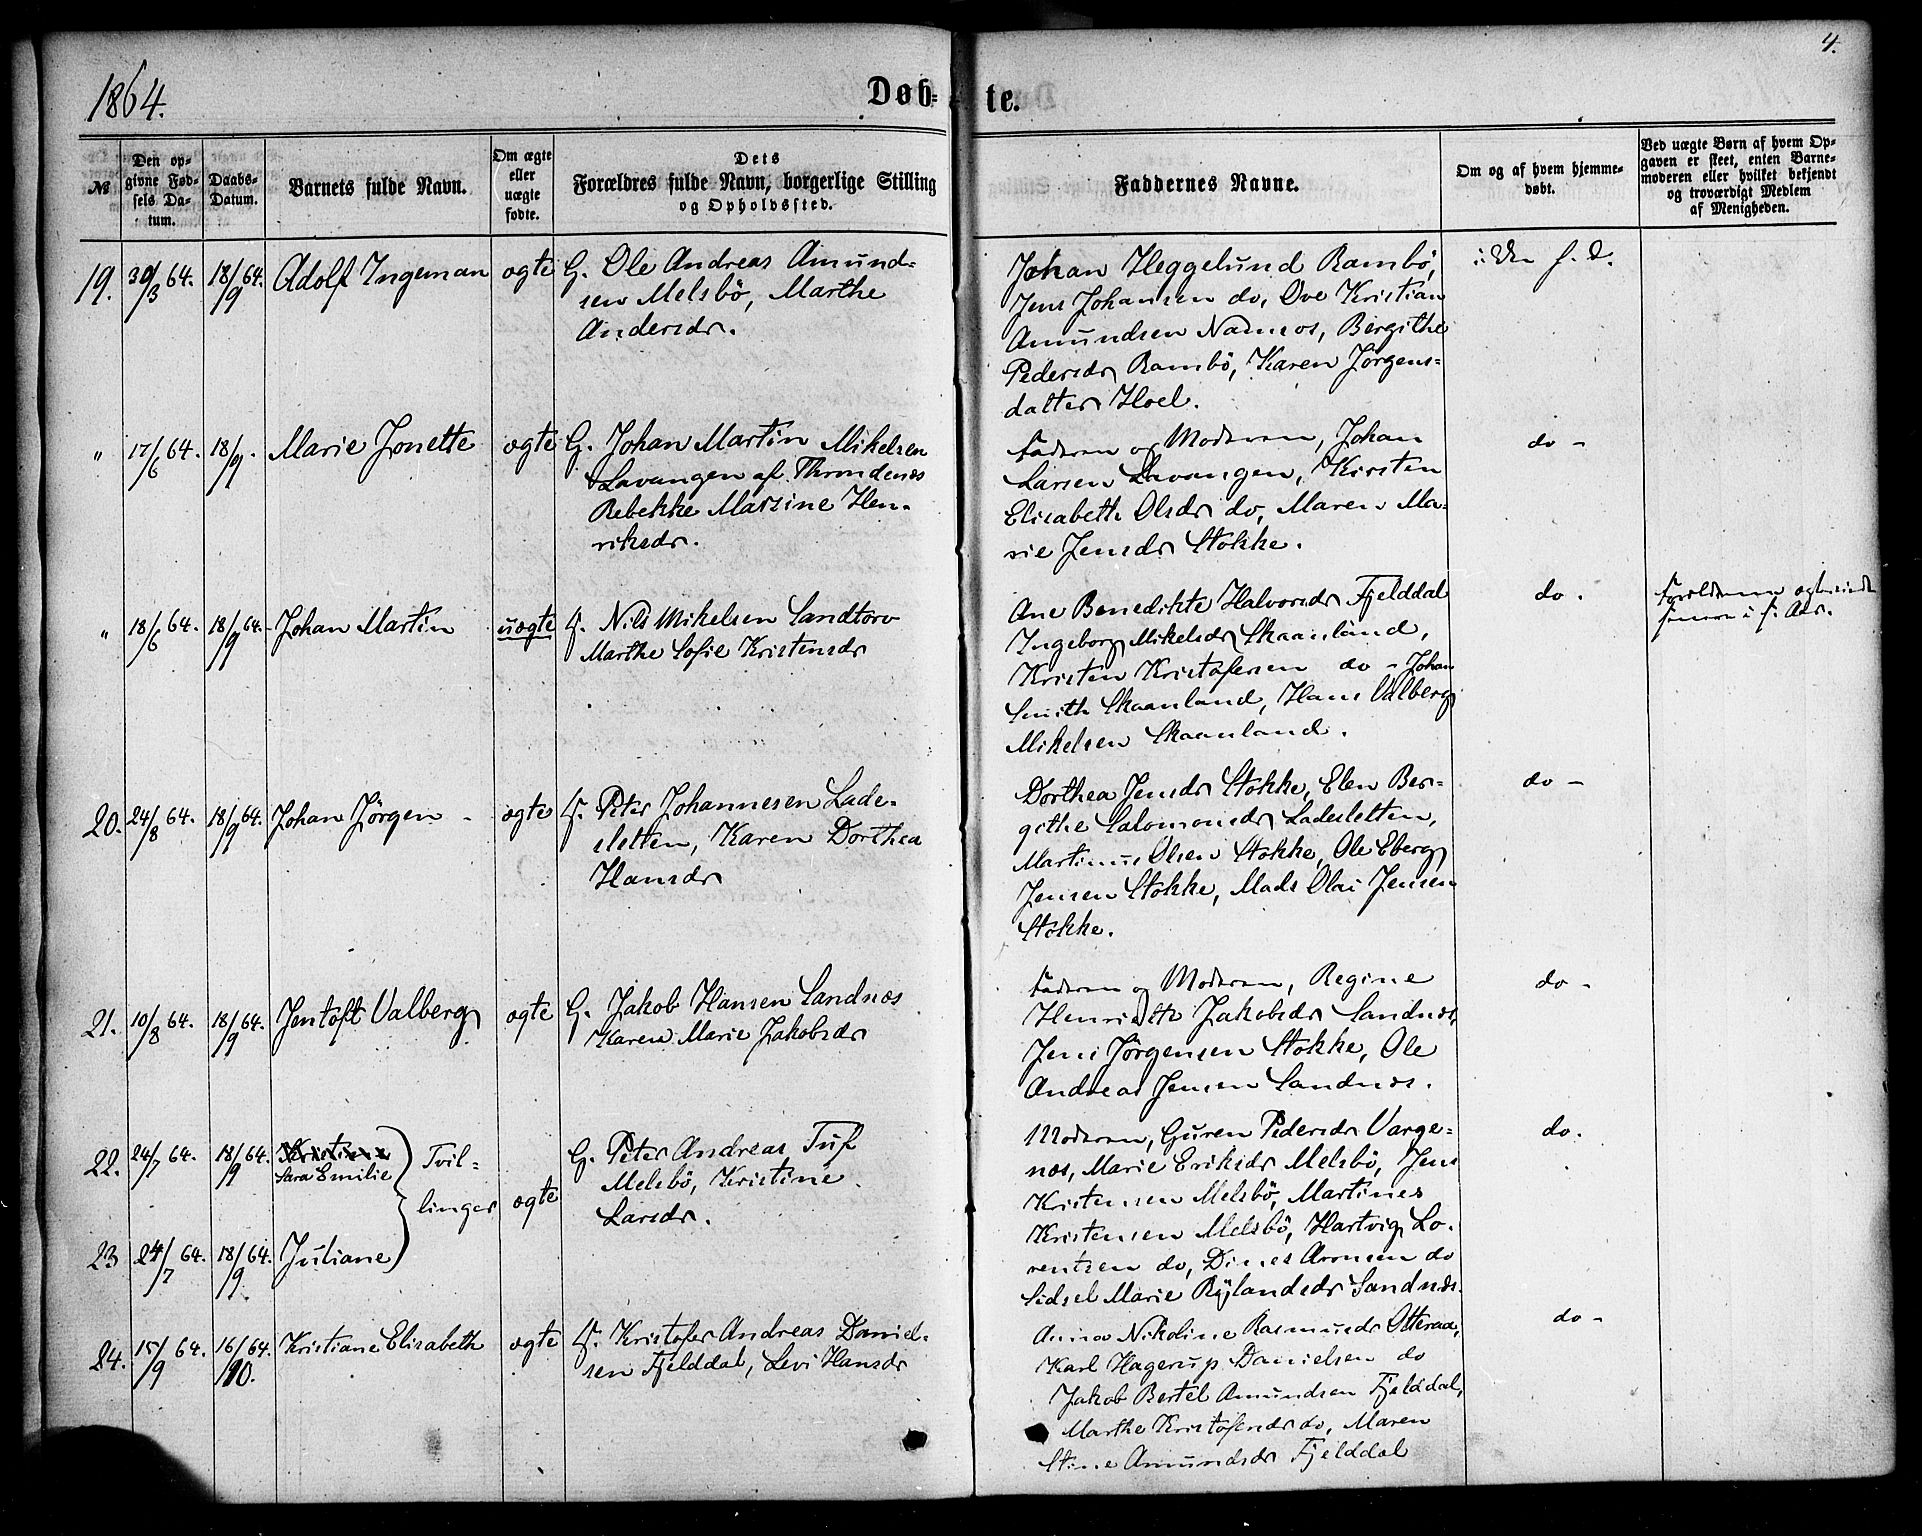 4.
1864.
Døb- te.
№
Den opgivne Fødsels Datum.
Daabs-Datum.
Barnets fulde Navn.
Om ægte eller uægte fødte.
Dets Forældres fulde Navn, borgerlige Stilling og Opholdssted.
Faddernes Navne.
Om og af hvem hjemmedøbt.
Ved uægte Børn af hvem Opgaven er skeet, enten Barnemoderen eller hvilket bekjendt og troværdigt Medlem af Menigheden.
19. 30/3 64. 18/9 64. Adolf Ingeman ægte
G. Ole Andreas Amund-
sen Melsbö, Marthe
Andersdr.
Johan Heggelund Rambö,
Jens Johansen do, Ove Kristian
Amundsen Namsos, Bergithe
Pedersdr Rambö, Karen Jörgens-
datter Hoel.
" 17/6 64. 18/9. Marie Jonette ægte
G. Johan Martin Mikelsen
Lavangen af Throndenæs
Rebekke Marsine Hen-
riksdr.
Faderen og Moderen, Johan
Larsen Lavangen, Kirsten
Elisabeth Olsdr do, Maren Ma-
rie Jensdr Stokke.
do -
" 18/6 64. 18/9 64. Johan Martin uægte
F. Nils Mikelsen Sandtorv
Marthe Sofie Kristensdr
Ane Benedikte Halvorsdr Fjelddal
Ingeborg Mikelsdr Skaanland,
Kristen Kristofersen do - Johan
Smith Skaanland, Hans Valberg
Mikelsen Skaanland.
do.
20. 24/8 64. 18/9 64. Johan Jörgen - ægte
F. Peter Johannesen Lade-
sletten, Karen Dorthea
Hansdr
Dorthea Jensdr Stokke, Elen Ber-
githe Salomonsdr Ladesletten,
Martinus Olsen Stokke, Ole Eberg
Jensen Stokke, Mads Olai Jensen
Stokke.
do -
21. 10/8 64. 18/9 64. Jentoft Valberg ægte
G. Jakob Hansen Sandnæs
Karen Marie Jakobsdr
Faderen og Moderen, Regine
Henriette Jakobsdr Sandnæs,
Jens Jörgensen Stokke, Ole
Andreas Jensen Sandnæs.
do -
22. 24/7 64. 18/9 64. Sara Emilie
Tvil-
linger
ægte
23 24/7 64. 18/9 64. Juliane
G. Peter Andreas Tuf
Melsbö, Kristine
Larsdr.
Moderen, Guren Pedersdr Varge-
næs, Marie Eriksdr Melsbö, Jens
Kristensen Melsbö, Martines
Kristensen Melsbö, Hartvig Lo-
rentsen do, Dines Aronsen do
Sidsel Marie Rylandsdr Sandnæs.
do.
24. 15/9 64. 16/10 64. Kristiane Elisabeth ægte
F. Kristofer Andreas Daniel-
sen Fjelddal, Levi Hansdr
Anna Nikoline Rasmusdr Otteraa,
Karl Hagerup Danielsen do
Jakob Bertel Amundsen Fjelddal,
Marthe Kristofersdr do, Maren
Stine Amundsdr Fjelddal
do -